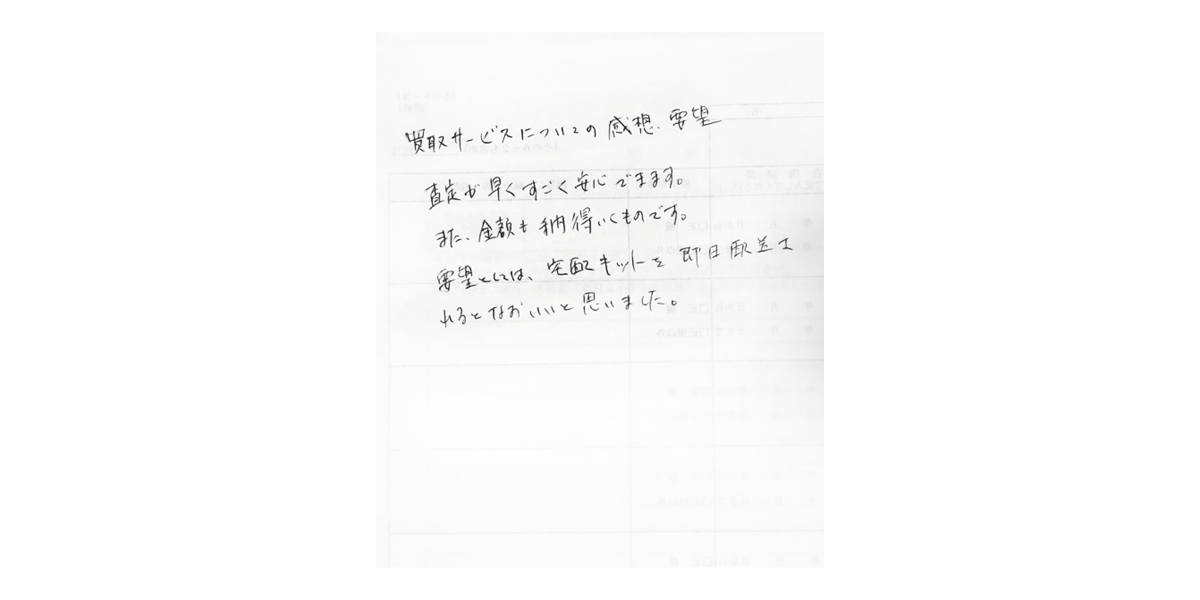 買取サービスについての感想、要望
査定が早くすごく安心できます。
また、金額も納得いくものです。
要望としては、宅配キットを即日配送さ
れるとなおいいと思いました。